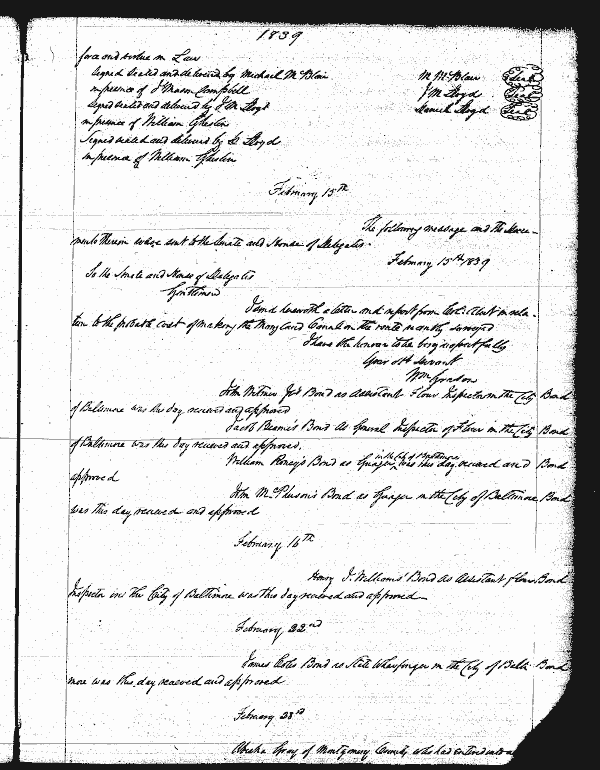 1839
force and virtue in Law
Signed sealed and delivered by Michael McBlair M McBlair Seal
in presence of J Mason Campbell J M Lloyd Seal
Signed sealed and delivered by J M Lloyd Lloyd Seal
in presence of William Ghiselin
Signed sealed and delivered by Lloyd
in presence of William Ghiselin
February 15th
The following message and the docu-
ments therein were sent to the Senate and House of Delegates.
February 15th 1839
To the Senate and House of Delegates
Gentlemen
I send herewith a letter and report from Col: Abert in rela-
tion to the probable cost of making the Maryland Canal on the route recently surveyed
I have the honour to be very respectfully
Your obt servant
Wm Grason
John Witmer Jr's Bond as Assistant Flour Inspector in the City Bond
of Baltimore was this day received and approved
Jacob Beams's Bond as General Inspector of Flour in the City Bond
of Baltimore was this day received and approved.
in the City of Baltimore
William Bond as Guager was this day received and Bond
approved
John McPherson's Bond as Guager in the City of Baltimore Bond
was this day received and approved
February 16th
Henry J. Williams' Bond as Assistant Flour Bond
Inspector in the City of Baltimore was this day received and approved
February 22nd
James Bond as State Wharfinger in the City of Balti- Bond
more was this day received and approved
February 23rd
Gray of Montgomery County who had entered into a